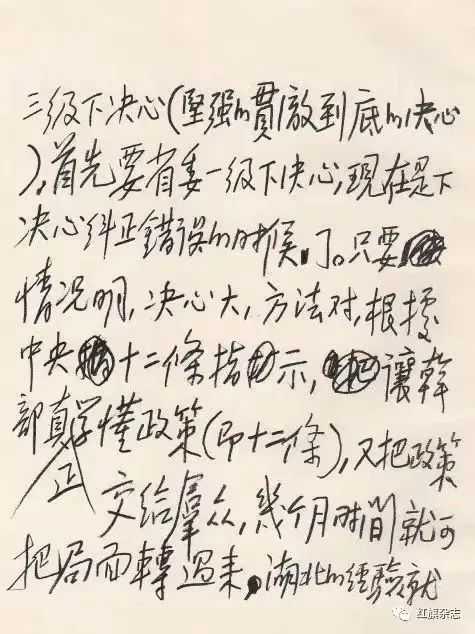 三级下决心(坚强的貫澈到底的决心
),首先要省委一级下决心,现在是下
决心纠正錯誤的时候了。只要
情况明,决心大,方法对,根据
中央十二條指示,讓幹
部真正学懂政策(即十二條),又把政策
交给羣众,幾个月时间就可
把局面轉过来,湖北的经驗就
红旗杂志